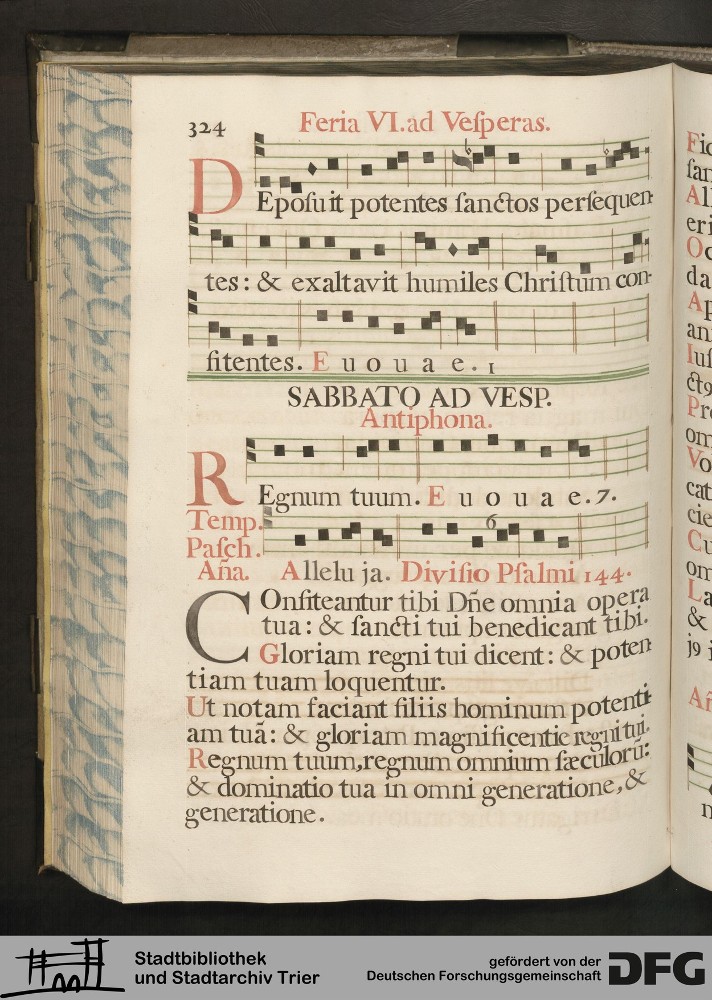 324 Feria VI. ad Veſperas.
DEpoſuit potentes ſanctos perſequen-
tes: & exaltavit humiles Chriſtum con-
fitentes. E u o u a e. 1
SABBATO AD VESP.
Antiphona.
REgnum tuum. E u o u a e. 7.
Temp.
Paſch.
6
Aña. Allelu ja. Diviſio Pſalmi 144.
COnfiteantur tibi Dñe omnia opera
tua: & ſancti tui benedicant tibi.
Gloriam regni tui dicent: & poten
tiam tuam loquentur.
Ut notam faciant filiis hominum potenti-
am tuã: & gloriam magnificentie regni tui.
Regnum tuum, regnum omnium ſæculorũ:
& dominatio tua in omni generatione, &
generatione.
Stadtbibliothek
und Stadtarchiv Trier
gefördert von der
Deutschen Forschungsgemeinschaft
DFG